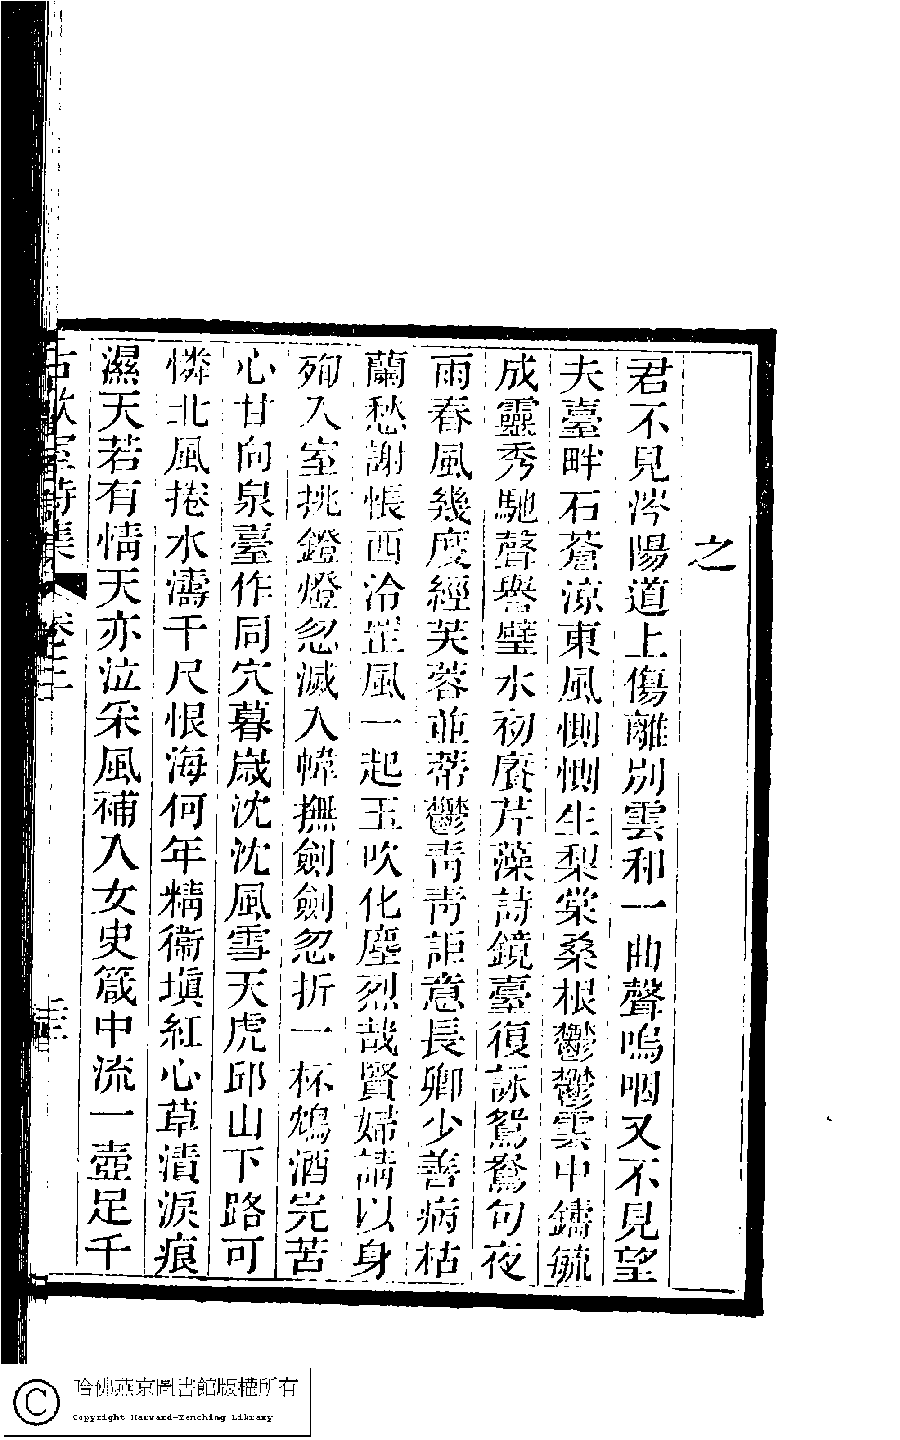 之
君不見涔陽道上傷離别雲和一曲聲嗚咽又不見望
夫臺畔石蒼凉東風惻惻生梨棠桑根鬱鬱雲中鑄毓
成靈秀馳聲譽璧水初賡芹藻詩鏡臺復詠鴛鴦句夜
雨春風幾度經芙蓉並蒂鬱青青詎意長卿少善病枯
蘭愁謝悵西泠罡風一起玉吹化塵烈哉賢婦請以身
殉入室挑鐙燈忽滅入幃撫劍劍忽折一杯鴆酒完苦
心甘向泉臺作同穴暮歲沈沈風雪天虎邱山下路可
憐北風捲水濤千尺恨海何年精衞塡紅心草漬淚痕
濕天若有情天亦泣采風補入女史箴中流一壺足千
詩集 卷三 三
哈佛燕京圖書館版權所有
Copyright Harvard-Yenching Library